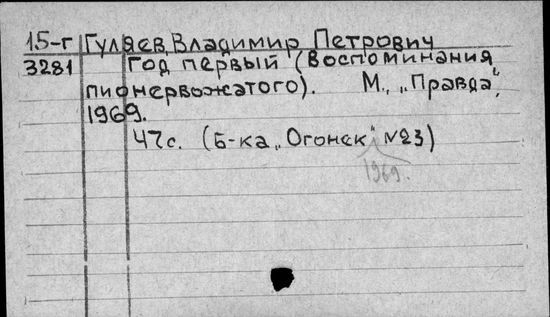 15-г Гуляев, Владимир Петрович
3281 Год первый (Воспоминания
пионервожатого). М., „Правда",
1969.
47с. (Б-ка „Огонек" №23)
1969.